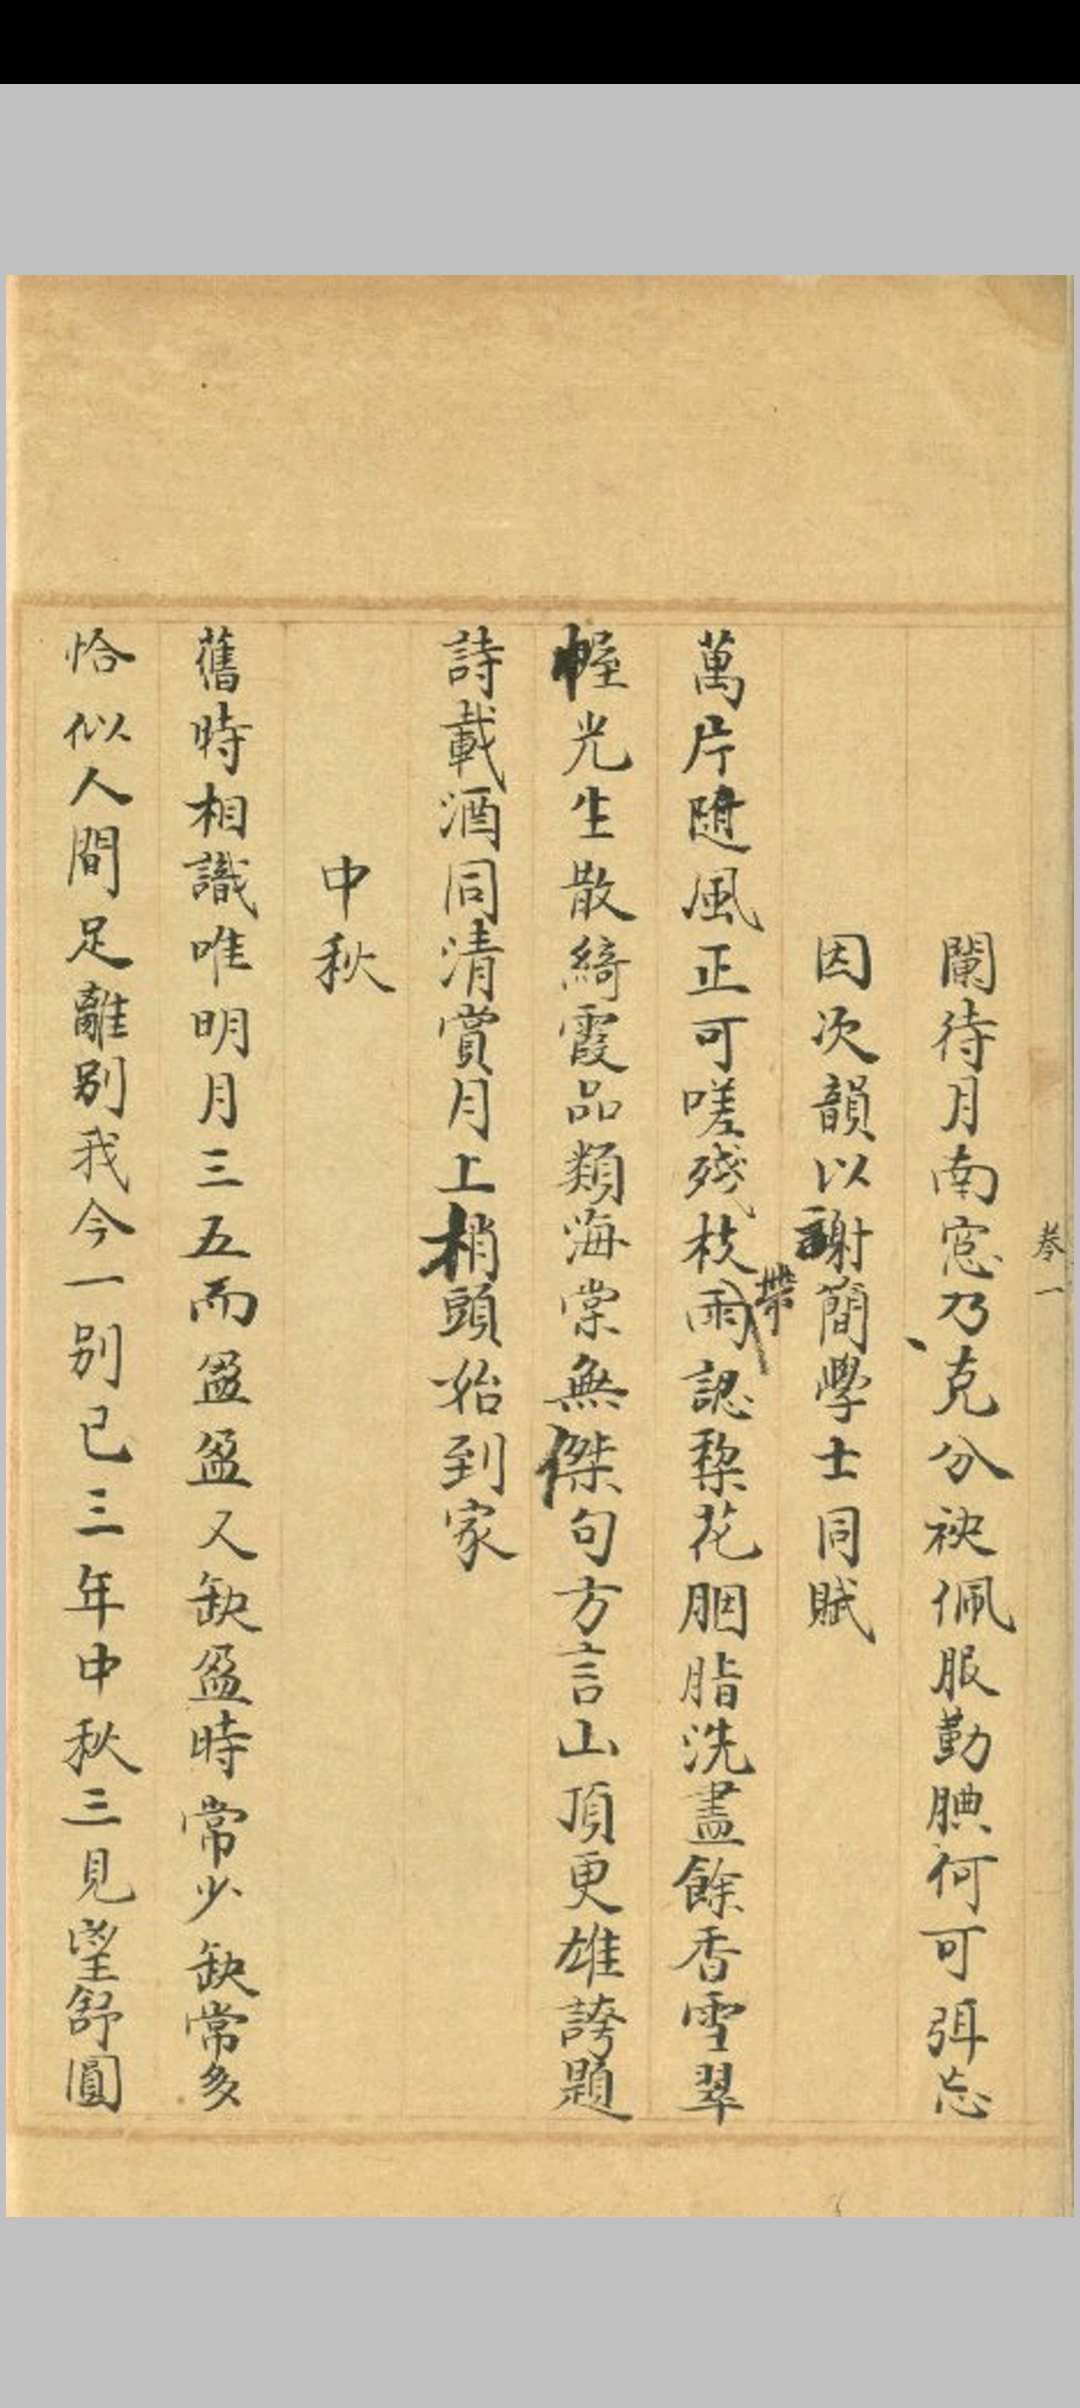 卷一
闌待月南窓乃克分袂佩服勤腆何可弭忘
因次韻以謝簡學士同賦
萬片隨風正可嗟殘枝雨帶認梨花胭脂洗盡餘香雪翠
幄光生散綺霞品類海棠無傑句方言山頂更雄誇題
詩載酒同清賞月上梢頭始到家
中秋
舊時相識唯明月三五而盈盈又缺盈時常少缺常多
恰似人間足離別我今一別已三年中秋三見望舒圓